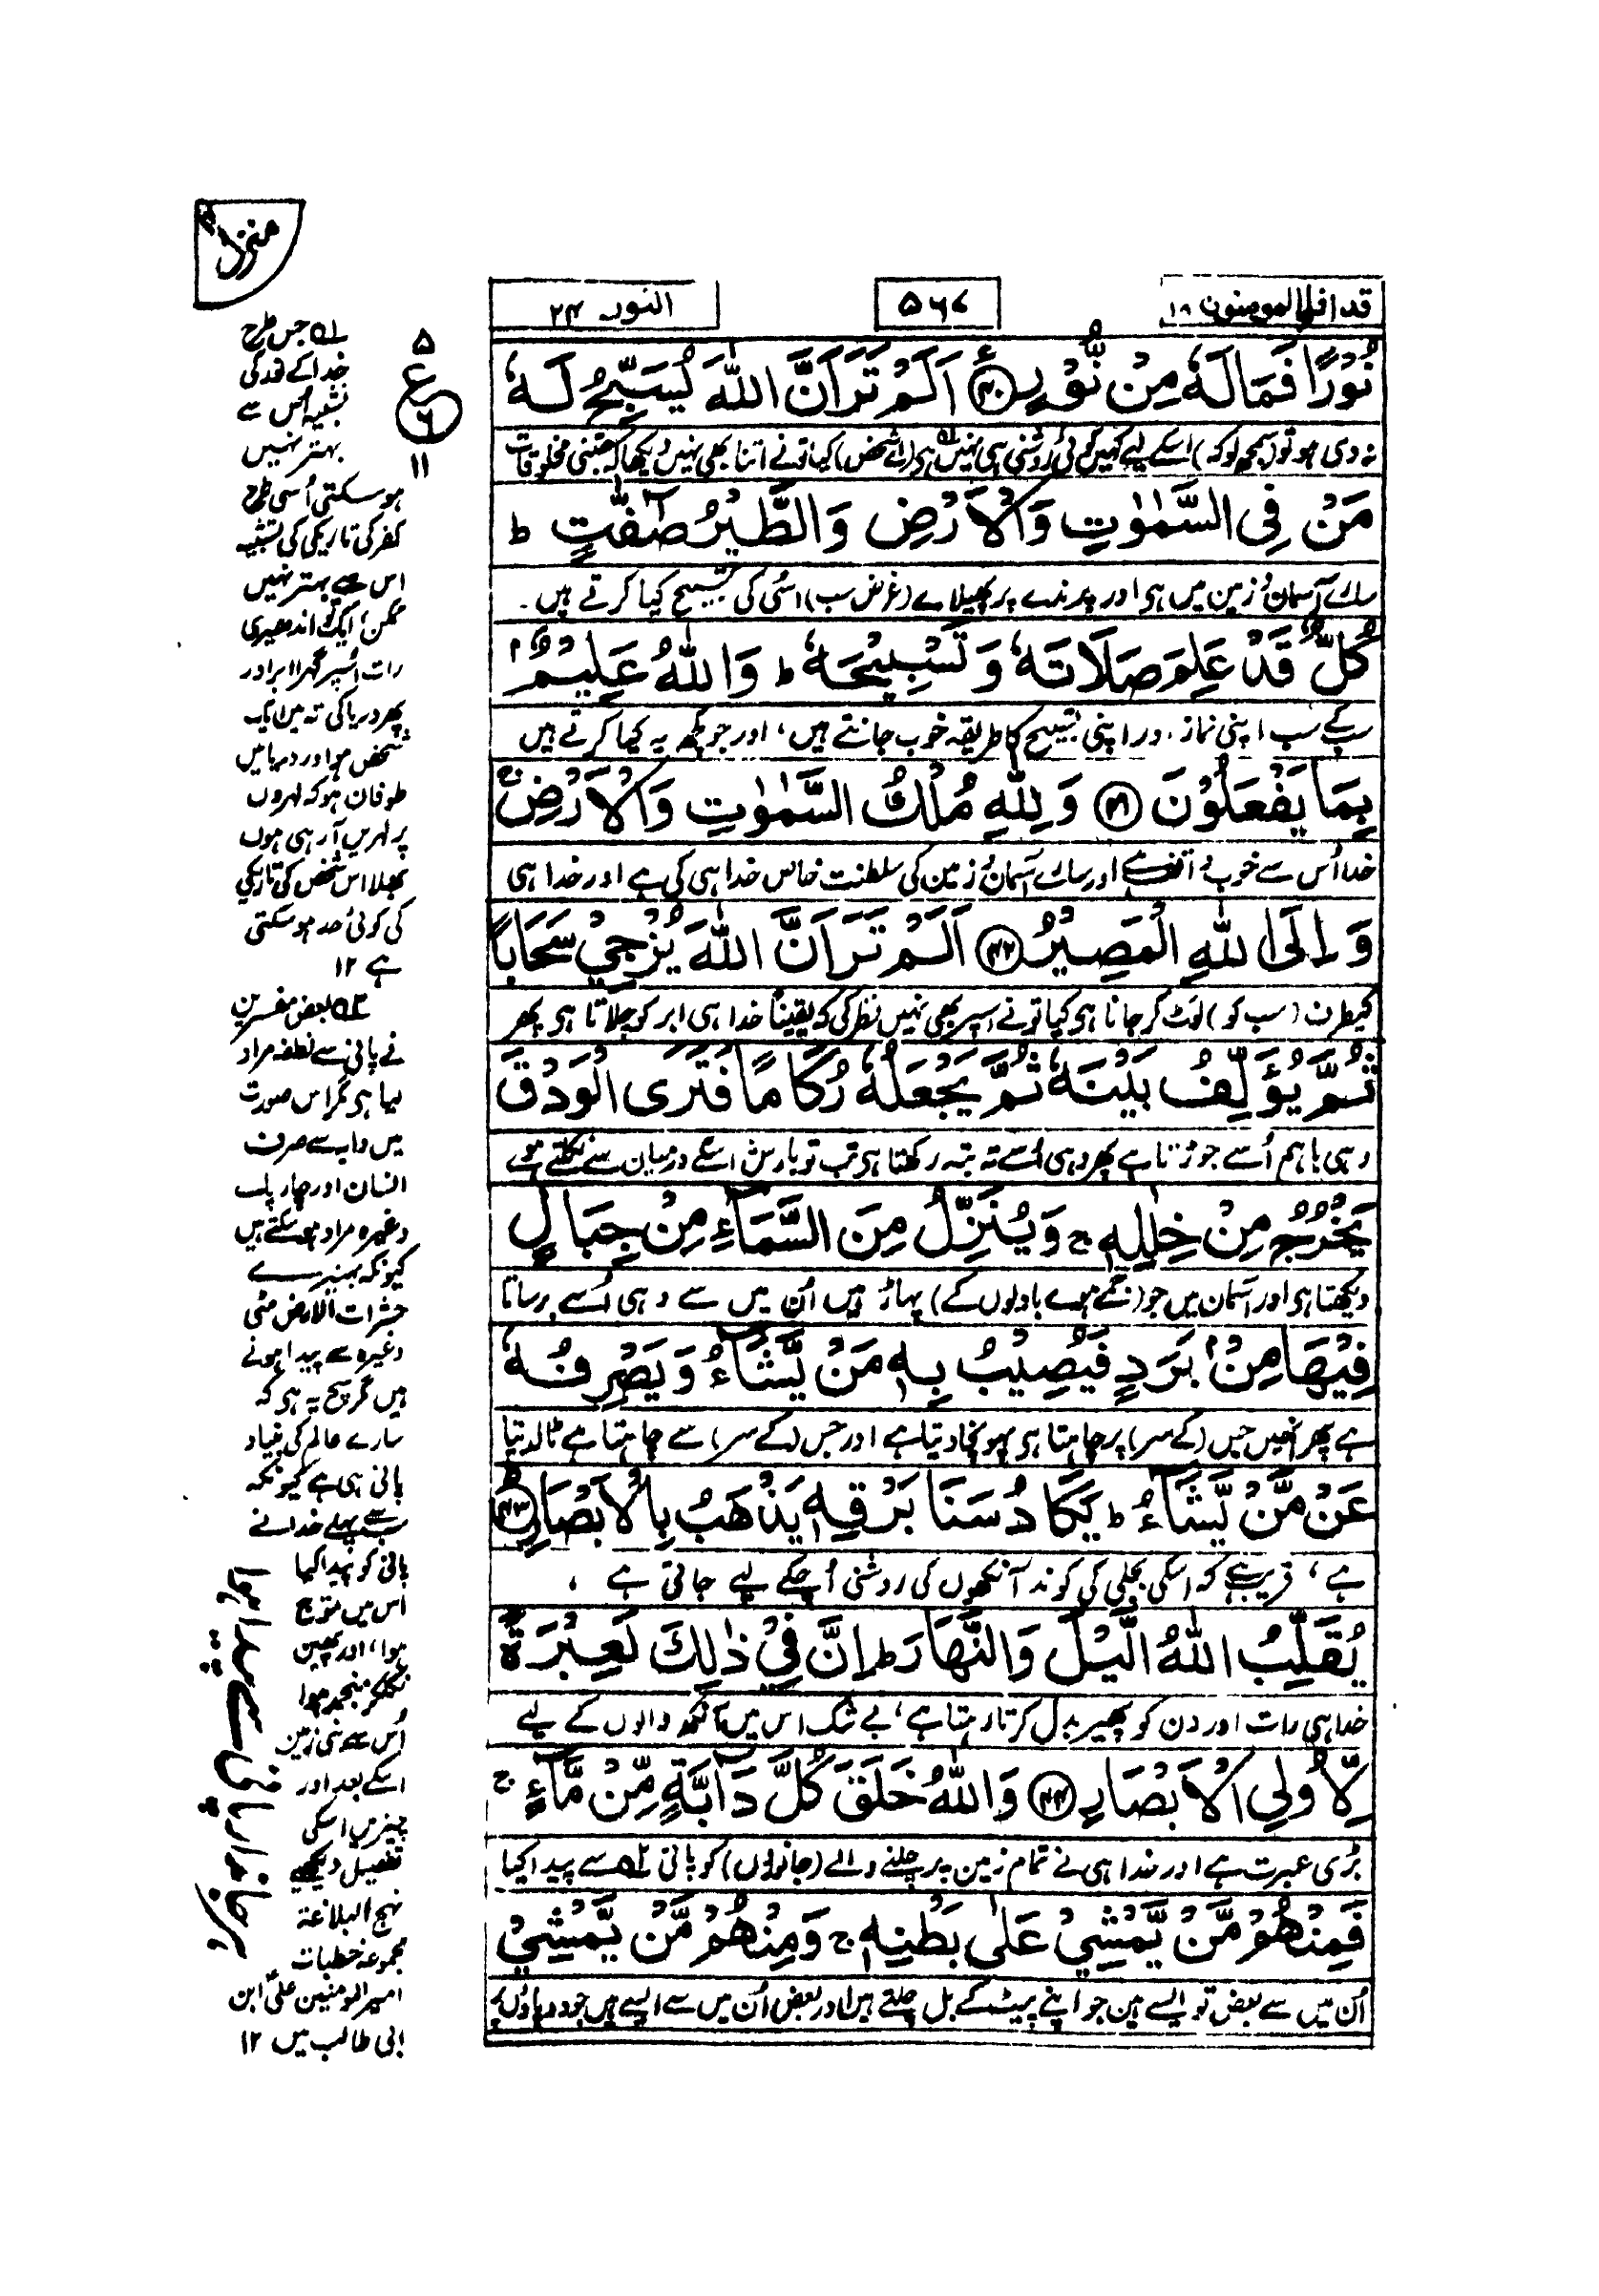 قد افلح المومنون ۱۸
۵۶۷
النور ۲۴
منزل ۴
نُوْرًا فَمَا لَهٗ مِنْ نُّوْرٍ ﴿۴۰﴾ اَلَمْ تَرَ اَنَّ اللّٰهَ یُسَبِّحُ لَهٗ
نہ دی ہو تو (سمجھ لو کہ) اسکے لیے کہیں کوئی روشنی ہی نہیں ہے (اے شخص) کیا تونے اتنا بھی نہیں دیکھا کہ جتنی مخلوقات
مَنْ فِی السَّمٰوٰتِ وَالْاَرْضِ وَالطَّیْرُ صٰٓفّٰتٍ ط
سارے آسمان و زمین میں ہی اور پرندے پر پھیلاے (غرض سب) اسی کی تسبیح کیا کرتے ہیں۔
کُلٌّ قَدْ عَلِمَ صَلَاتَهٗ وَتَسْبِیْحَهٗ ط وَاللّٰهُ عَلِیْمٌۢ
سب کے سب اپنی نماز اور اپنی تسبیح کا طریقہ خوب جانتے ہیں، اور جو کچھ یہ کیا کرتے ہیں
بِمَا یَفْعَلُوْنَ ﴿۴۱﴾ وَلِلّٰهِ مُلْكُ السَّمٰوٰتِ وَالْاَرْضِ ج
خدا اُس سے خوب واقف ہے اور سارے آسمان و زمین کی سلطنت خاص خدا ہی کی ہے اور خدا ہی
وَاِلَی اللّٰهِ الْمَصِیْرُ ﴿۴۲﴾ اَلَمْ تَرَ اَنَّ اللّٰهَ یُزْجِیْ سَحَابًا
کیطرف (سب کو) لوٹ کر جانا ہی کیا تونے اسپر بھی نہیں نظر کی کہ یقیناً خدا ہی ابر کو چلاتا ہی پھر
ثُمَّ یُؤَلِّفُ بَیْنَهٗ ثُمَّ یَجْعَلُهٗ رُكَامًا فَتَرَی الْوَدْقَ
وہی باہم اُسے جوڑتا ہے پھر وہی اُسے تہ بتہ رکھتا ہی تب تو بارش اسکے درمیان سے نکلتے ہوے
یَخْرُجُ مِنْ خِلٰلِهٖ ج وَیُنَزِّلُ مِنَ السَّمَآءِ مِنْ جِبَالٍ
دیکھتا ہی اور آسمان میں جو (جمے ہوے بادلوں کے) پہاڑ ہیں اُن میں سے وہی اُسے برساتا
فِیْهَا مِنْۢ بَرَدٍ فَیُصِیْبُ بِهٖ مَنْ یَّشَآءُ وَیَصْرِفُهٗ
ہے پھر انھیں جس (کے سر) پر چاہتا ہی پہونچا دیتا ہے اور جس (کے سر) سے چاہتا ہے ٹال دیتا
عَنْ مَّنْ یَّشَآءُ ط یَكَادُ سَنَا بَرْقِهٖ یَذْهَبُ بِالْاَبْصَارِ ﴿۴۳﴾
ہے، قریب ہے کہ اسکی بجلی کی کوند آنکھوں کی روشنی اُچکے لیے جاتی ہے ،
یُقَلِّبُ اللّٰهُ الَّیْلَ وَالنَّهَارَ ط اِنَّ فِیْ ذٰلِكَ لَعِبْرَةً
خدا ہی رات اور دن کو پھیر بدل کرتا رہتا ہے، بے شک اس میں آنکھ والوں کے لیے
لِّاُولِی الْاَبْصَارِ ﴿۴۴﴾ وَاللّٰهُ خَلَقَ كُلَّ دَآبَّةٍ مِّنْ مَّآءٍ ج
بڑی عبرت ہے اور خدا ہی نے تمام زمین پر چلنے والے (جانوروں) کو پانی ۲ سے پیدا کیا
فَمِنْهُمْ مَّنْ یَّمْشِیْ عَلٰی بَطْنِهٖ ج وَمِنْهُمْ مَّنْ یَّمْشِیْ
اُن میں سے بعض تو ایسے ہیں جو اپنے پیٹ کے بل چلتے ہیں اور بعض اُن میں سے ایسے ہیں جو دو پاؤں پر
۵
ع
۶
۱۱
۱ جس طرح
خدا کے نور کی
تشبیہ اُس سے
بہتر نہیں
ہو سکتی اُسی طرح
کفر کی تاریکی کی تشبیہ
اس سے بہتر نہیں
ممکن، ایک تو اندھیری
رات اُسپر گہرا ابر اور
پھر دریا کی تہ میں ایک
شخص ہو اور دریا میں
طوفان ہو کہ لہروں
پر لہریں آ رہی ہوں
بھلا اس شخص کی تاریکی
کی کوئی حد ہو سکتی
ہے ۱۲
۲ بعض مفسرین
نے پانی سے نطفہ مراد
لیا ہی مگر اس صورت
میں دابہ سے صرف
انسان اور چار پایہ
وغیرہ مراد ہو سکتے ہیں
کیونکہ بہتیرے
حشرات الارض مٹی
وغیرہ سے پیدا ہوتے
ہیں مگر سچ یہ ہی کہ
سارے عالم کی بنیاد
پانی ہی ہے کیونکہ
سب سے پہلے خدا نے
پانی کو پیدا کیا
اس میں تموج
ہوا، اور پھین
نکلکر منجمد ہوا
اُس سے بنی زمین
اسکے بعد اور
چیزیں اسکی
تفصیل دیکھیے
نہج البلاغہ
مجموعہ خطبات
امیر المومنین علی ابن
ابی طالب میں ۱۲
ہر جاندار پانی سے پیدا ہوا